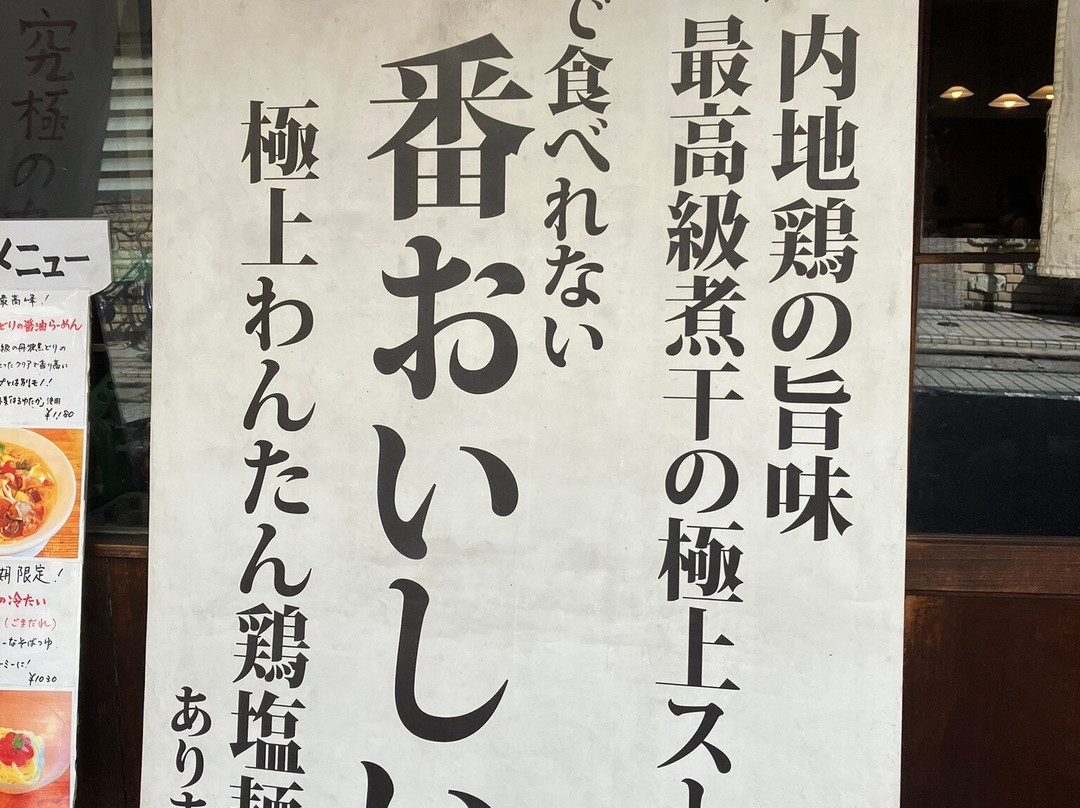 内地鶏の旨味
最高級煮干の極上ス
で食べれない
番おいしい
極上わんたん鶏塩麺
あり
究極の
メニュー
最高峰!
どりの醤油らーめん
級の丹波黒どりの
ったクリアで香り高い
プとは別モノ!
「はるゆたか」使用
¥1,180
期限定!
の冷たい
(ごまだれ)
ーなそばつゆ
ーミーに!
¥1030